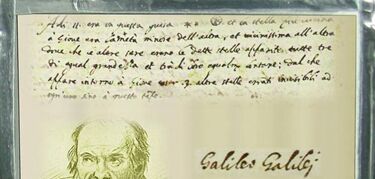 Adì 11. era in questa guisa et la stella più vicina
à Giove era la metà minore dell'altra, et vicinissima all'altra
dove che le altre sere erano le dette stelle apparite tutte tre
di equal grandezza et trà di loro equalm. lontane; dal che
appare intorno à Giove esser 3. altre stelle erranti invisibili ad
ogn'uno sino à questo tempo.
Galileo Galilej